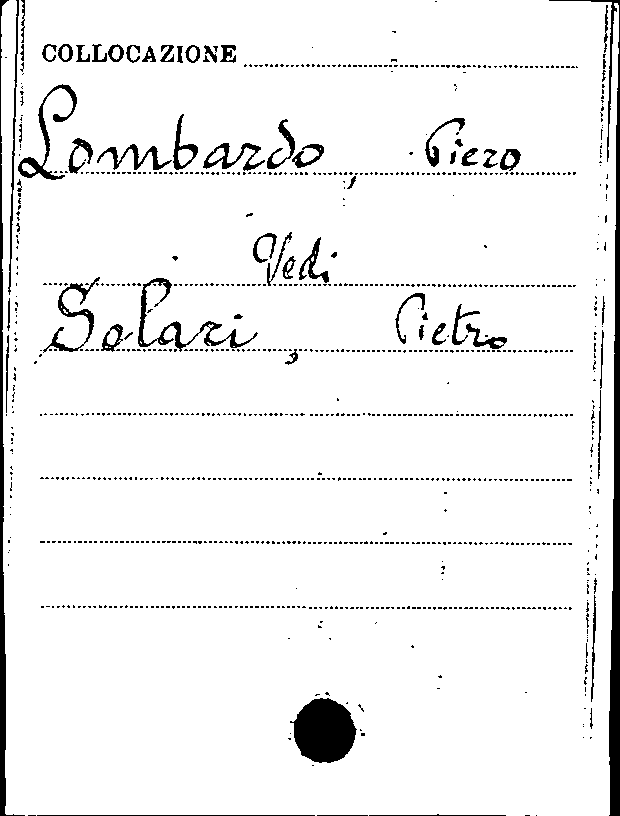 COLLOCAZIONE
Lombardo, Piero
Vedi
Solari, Pietro